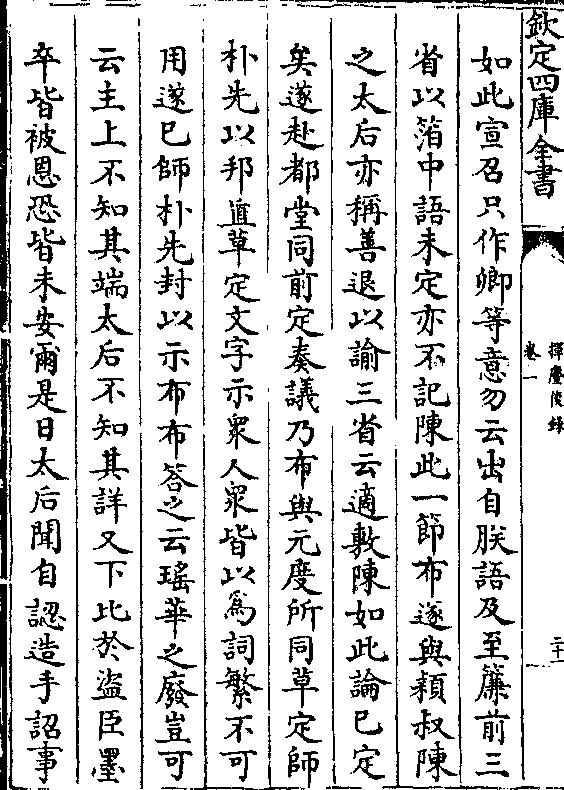 欽定四庫全書
揮麈後錄
卷一
二十一
如此宣召只作卿等意勿云出自朕語及至簾前三
省以箔中語未定亦不記陳此一節布遂與穎叔陳
之太后亦稱善退以諭三省云適敷陳如此論已定
矣遂赴都堂同前定奏議乃布與元度所同草定師
朴先以邦直草定文字示衆人衆皆以為詞繁不可
用遂已師朴先封以示布布答之云瑤華之廢豈可
云主上不知其端太后不知其詳又下比於盜臣墨
卒皆被恩恐皆未安爾是日太后聞自認造手詔事